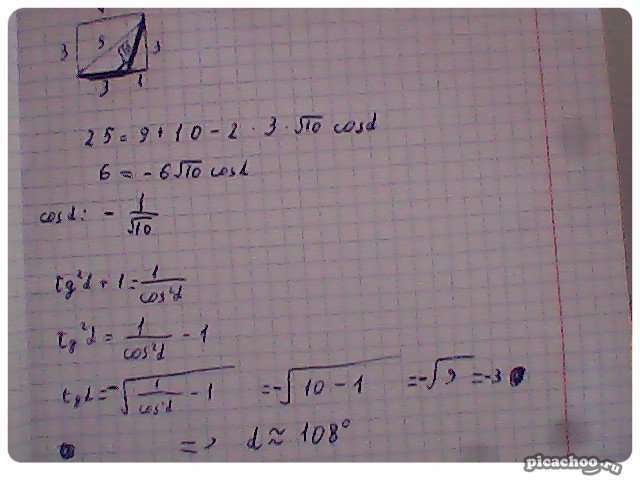 3 5 √10 3
3 1
25 = 9 + 10 - 2 · 3 · √10 cosα
6 = -6√10 cosα
cosα = - 1/√10
tg²α + 1 = 1/cos²α
tg²α = 1/cos²α - 1
tgα = -√(1/cos²α - 1) = -√(10 - 1) = -√9 = -3
=> α ≈ 108°
picachoo.ru